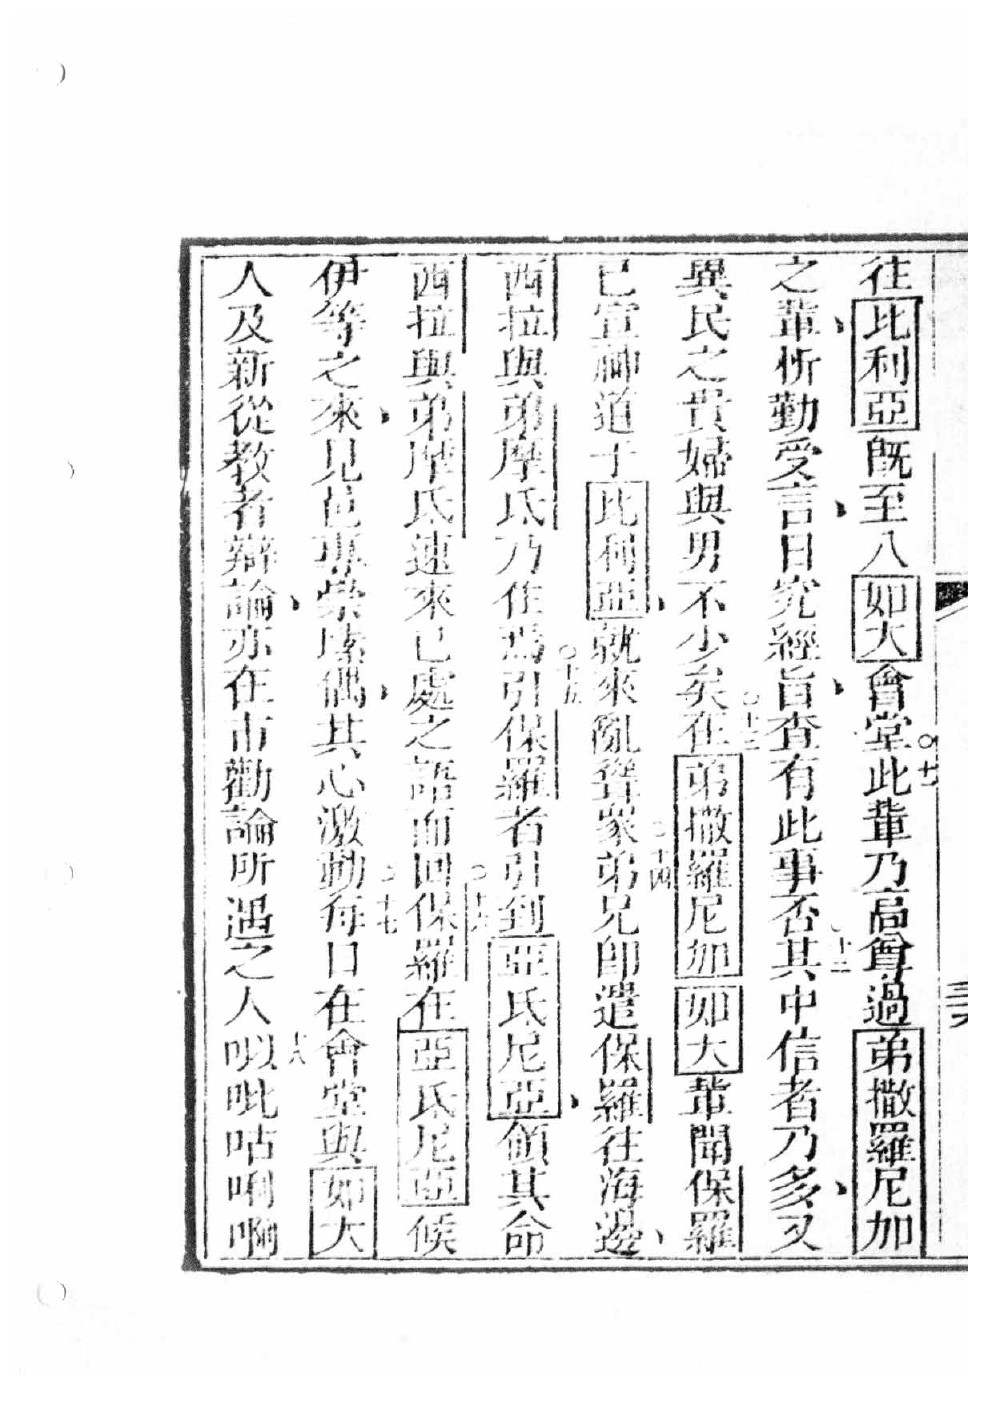 往比利亞旣至八如大會堂○十一此輩乃高尊過弟撒羅尼加
之輩、忻勤受言、日究經旨、查有此事否○十二其中信者乃多、又
異民之貴婦與男不少矣○十三在弟撒羅尼加如大輩聞保羅
已宣神道于比利亞、就來亂聳衆○十四弟兄卽遣保羅往海邊、
西拉與弟摩氐乃住焉○十五引保羅者引到亞氐尼亞、領其命
西拉與弟摩氐速來已處之語而回○十六保羅在亞氐尼亞候
伊等之來、見邑專崇咮偶、其心激動○十七每日在會堂與如大
人及新從教者辯論、亦在市勸論所遇之人十八㕽吡咕唎啊
三六